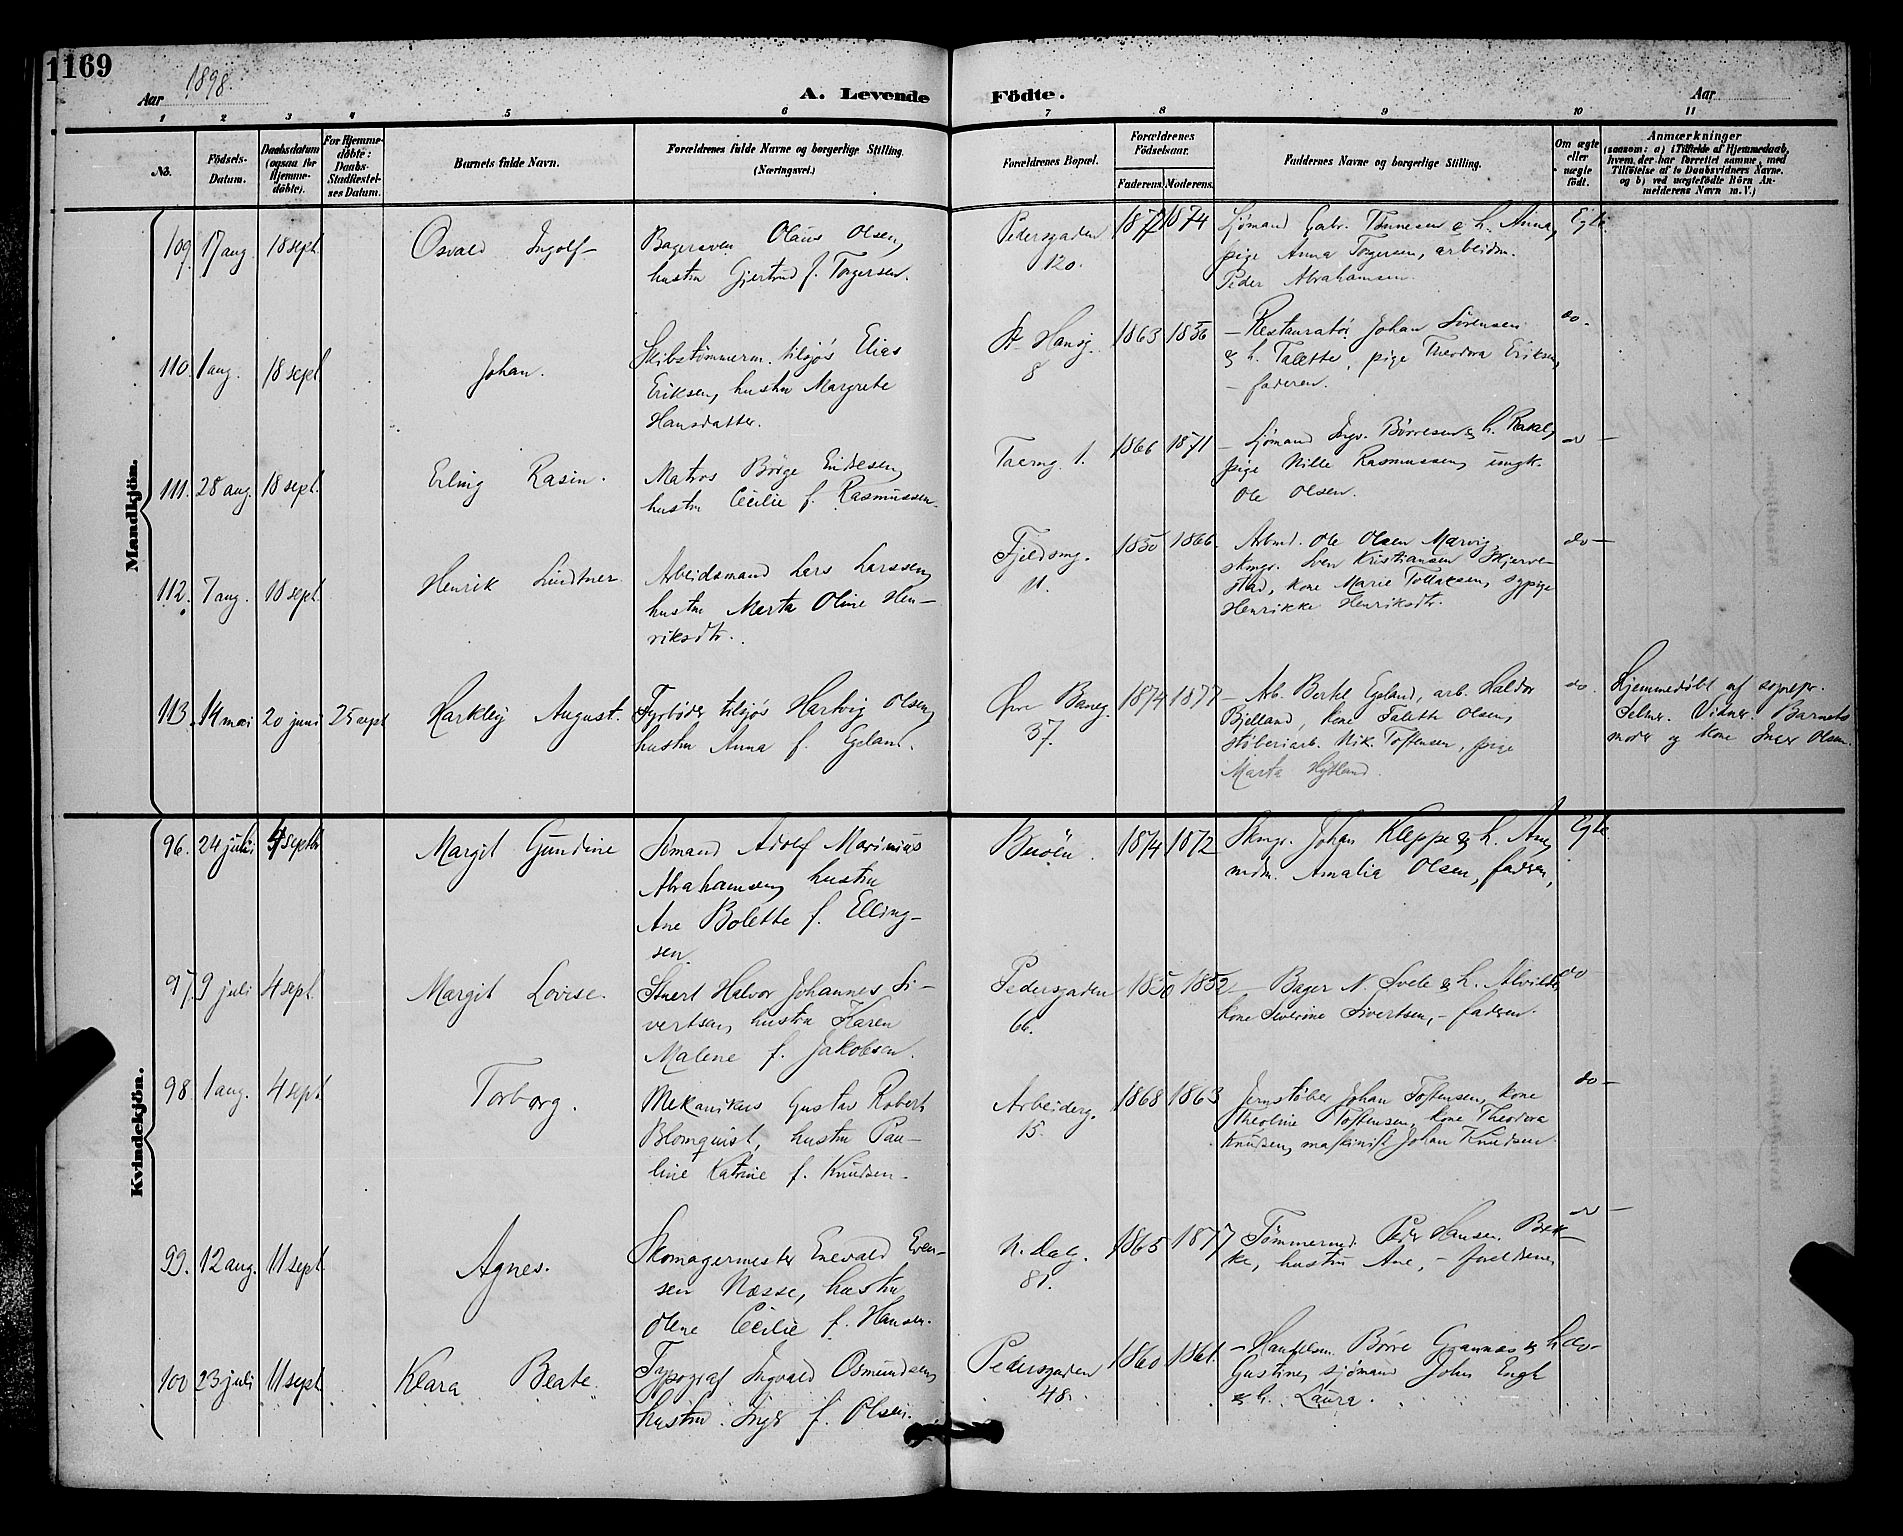 1169
Aar 1898.
A. Levende Födte.
Aar
1 2 3 4 5 6 7 8 9 10 11
No.
Födsels-Datum.
Daabsdatum (ogsaa for Hjemme-döbte).
For Hjemme-döbte: Daabs-Stadfæstel-ses Datum.
Barnets fulde Navn.
Forældrenes fulde Navne og borgerlige Stilling. (Næringsvei.)
Forældrenes Bopæl.
Forældrenes Födselsaar.
Faderens. Moderens.
Faddernes Navne og borgerlige Stilling.
Om ægte eller uægte födt.
Anmærkninger
(saasom: a) i Tilfælde af Hjemmedaab, hvem der har forrettet samme, med Tilföielse af to Daabsvidners Navne, og b) ved uægtefödte Börn An-melderens Navn m. V.)
Mandkjön.
109. 17 aug. 18 sept. Osvald Ingolf
Bagersven Olaus Olsen,
hustru Gjertrud f. Torgersen.
Pedersgaden
120.
1872 1874
Sjömand Gabr. Tönnesen & h. Anna,
pige Anna Torgersen, arbeidm.
Peder Abrahamsen.
Egte
110. 1 aug. 18 sept Johan.
Skibstömmerm. tilsjös Elias
Eriksen, hustru Margrete
Hansdatter.
St Hansg.
8
1863 1856
– Restauratör Johan Sörensen
& h. Talette, pige Theodora Eriksen,
– faderen.
do.
111. 28 aug. 18 sept. Erling Rasin.
Matros Börge Endresen,
hustru Cecilie f. Rasmussen.
Taarng. 1.
1866 1871
– Sjömand Ingv. Börresen & h. Rakel,
pige Nille Rasmussen, ungk.
Ole Olsen.
do –
112. 7 aug. 18 sept. Henrik Lindtner
Arbeidsmand Lars Larssen,
hustru Marta Oline Hen-
riksdtr.
Fjeldsmg.
11.
1850 1866
Arbmd. Ole Olsen Marvig,
skmgr. Sven Kristiansen Skjerve-
stad, kone Marie Tollaksen, sypige
Henrikke Henriksdtr.
do –
113. 14 mai 20 juni 25 sept Harkley August.
Fyrböder tilsjös Hartvig Olsen,
hustru Anna f. Egeland.
Övre Baneg.
37.
1874 1877
– Ab. Bertel Egeland, arb. Haldor
Bjelland, kone Talette Olsen,
stöberiarb. Nik. Toftensen, pige
Marta Hytland.
do.
Hjemmedöbt af sognepr.
Selmer. Vidner. Barnets
moder og kone Inger Olsen.
Kvindekjön.
96. 24 juli 4 septb Margit Gundine
Sömand Adolf Marinius
Abrahamsen, hustru
Ane Bolette f. Elling-
sen.
Buöen.
1874 1872
Skmgr. Johan Kleppe & h. Ane,
mdm. Amalia Olsen, faderen,
Egte
97. 9 juli 4 sept. Margit Lovise.
Stuert Halvor Johannes Si-
vertsen, hustru Karen
Malene f. Jakobsen.
Pedersgaden
66.
1850 1852
– Bager N. Svele & h. Alvilde,
kone Severine Sivertsen, – faderen.
do –
98 1 aug. 4 sept Torborg.
Mekanikus Gustav Robert
Blomquist, hustru Pau-
line Katrine f. Knudsen.
Arbeiderg.
15.
1868 1863
Jernstöber Johan Toftensen, kone
Theoline Toftensen, kone Theodora
Knudsen, maskinist Johan Knudsen.
do –
99. 12 aug. 11 sept. Agnes.
Skomagermester Enevald Even-
sen Næsse, hustru
Olene Cecilie f. Hansen.
N. Dalg.
81.
1865 1877
Tömmermd. Peder Hansen Bek-
ke, hustru Ane, –
do –
100 23 juli 11 sept. Klara Beate.
Typograf Ingvald Osmundsen,
hustru Inger f. Olsen.
Pedersgaden
48.
1860 1861.
– Handelsm. Börre & h.
Gustine, sjömand John Engh
& h. Laura.
do –